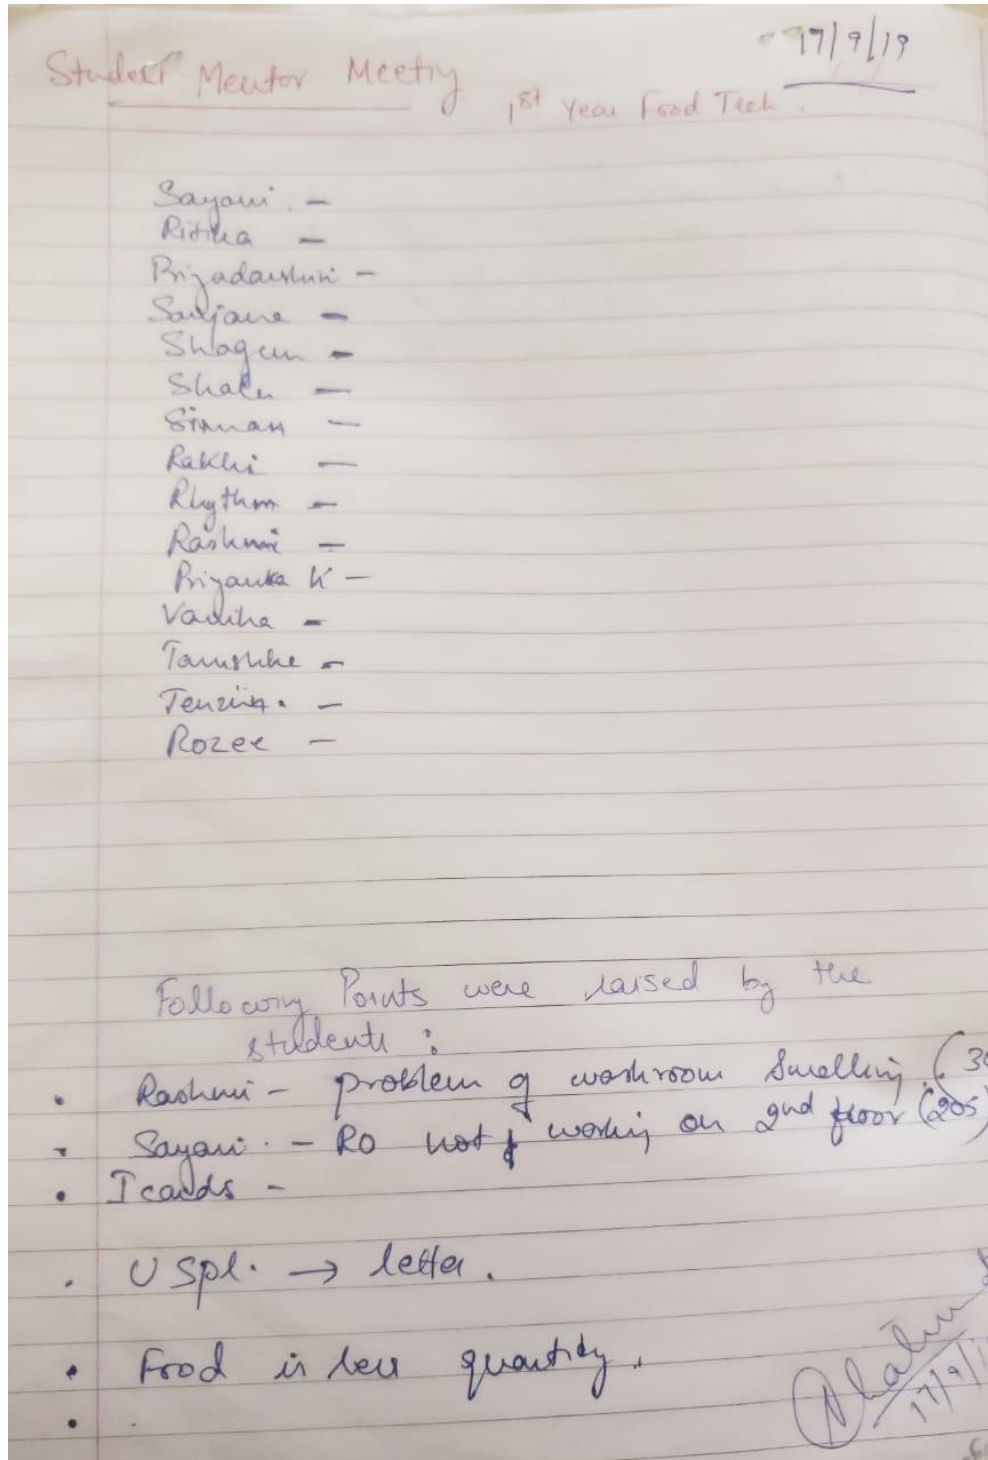 17/9/19
Student Mentor Meeting
1st Year Food Tech.
Sayani. -
Ritika -
Priyadarshini -
Sanjana -
Shagun -
Shalu -
Simran -
Rakhi -
Rhythm -
Rashmi -
Priyanka K -
Vanika -
Tanishka -
Tenzin. -
Rozee -
Following Points were raised by the
students :
• Rashmi - problem of washroom smelling. (30
• Sayani. - RO not working on 2nd floor (205)
• I cards -
• U Spl. → letter.
• Food is less quantity.
•
17/9/1